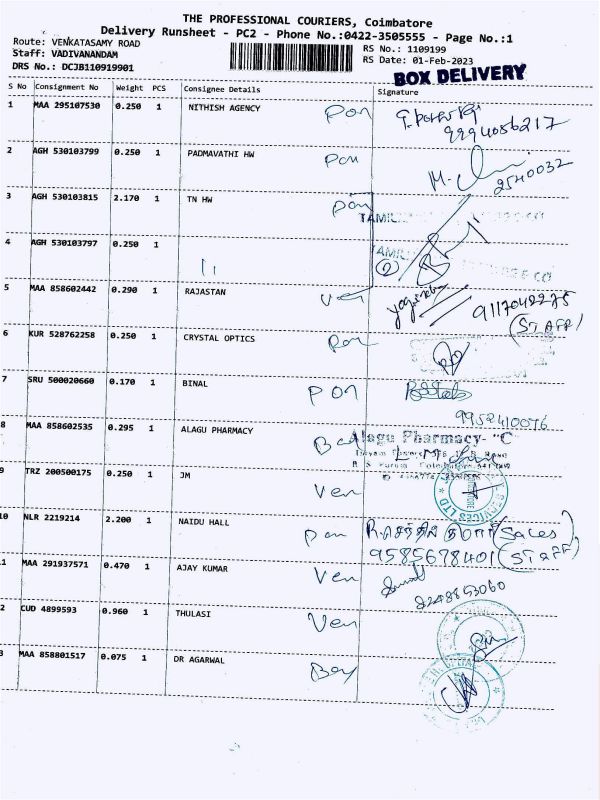 THE PROFESSIONAL COURIERS, Coimbatore
Delivery Runsheet - PC2 - Phone No.:0422-3505555 - Page No.:1
Route: VENKATASAMY ROAD
RS No.: 1109199
Staff: VADIVANANDAM
RS Date: 01-Feb-2023
DRS No.: DCJB110919901
BOX DELIVERY
S No Consignment No Weight PCS Consignee Details Signature
1 MAA 295107530 0.250 1 NITHISH AGENCY pon
9994056217
2 AGH 530103799 0.250 1 PADMAVATHI HW pon
2540032
3 AGH 530103815 2.170 1 TN HW pon
4 AGH 530103797 0.250 1 11
5 MAA 858602442 0.290 1 RAJASTAN Ven
9117042275
(STAFF)
6 KUR 528762258 0.250 1 CRYSTAL OPTICS pon
7 SRU 500020660 0.170 1 BINAL pon
9952410076
8 MAA 858602535 0.295 1 ALAGU PHARMACY
Alagu Pharmacy- "C"
9 TRZ 200500175 0.250 1 JM Ven
10 NLR 2219214 2.200 1 NAIDU HALL pon R.செந்தில் குமார் (Sales)
9585678401 (STAFF)
1 MAA 291937571 0.470 1 AJAY KUMAR Ven
2 CUD 4899593 0.960 1 THULASI Ven
3 MAA 858801517 0.075 1 DR AGARWAL